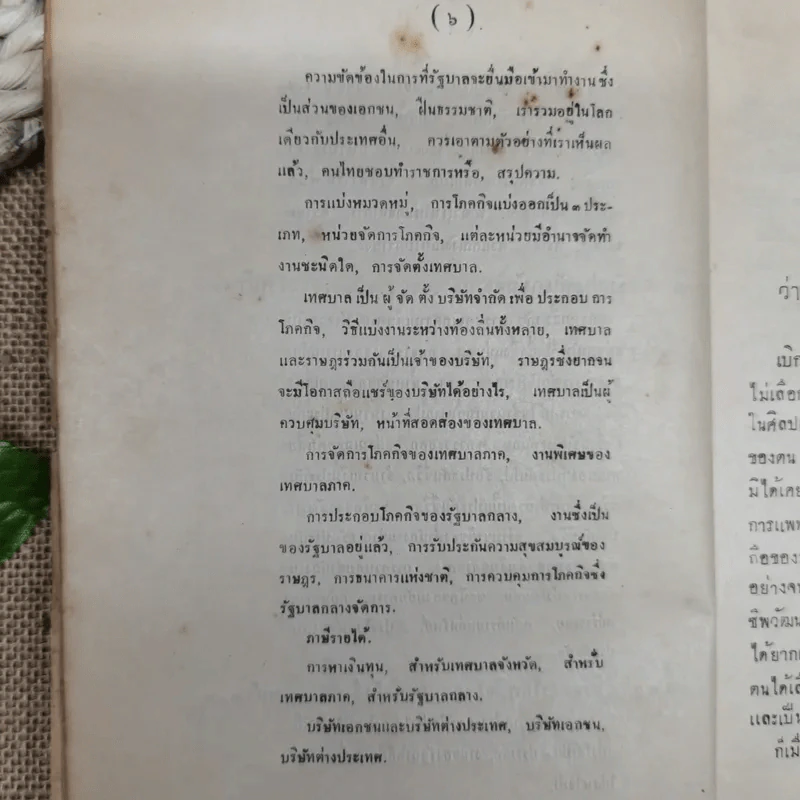 ( ๖ )
ความขัดข้องในการที่รัฐบาลจะยื่นมือเข้ามาทำงาน ซึ่ง
เป็นส่วนของเอกชน, ฝืนธรรมชาติ, เรารวมอยู่ในโลก
เดียวกับประเทศอื่น, ควรเอาตามตัวอย่างที่เราเห็นผล
แล้ว, คนไทยชอบทำราชการหรือ, สรุปความ.
การแบ่งหมวดหมู่, การโภคกิจแบ่งออกเป็น ๓ ประ-
เภท, หน่วยจัดการโภคกิจ, แต่ละหน่วยมีอำนาจจัดทำ
งานชะนิดใด, การจัดตั้งเทศบาล.
เทศบาล เป็น ผู้ จัด ตั้ง บริษัทจำกัด เพื่อ ประกอบ การ
โภคกิจ, วิธีแบ่งงานระหว่างท้องถิ่นทั้งหลาย, เทศบาล
และราษฎรร่วมกันเป็นเจ้าของบริษัท, ราษฎรซึ่งยากจน
จะมีโอกาสถือแชร์ของบริษัทได้อย่างไร, เทศบาลเป็นผู้
ควบคุมบริษัท, หน้าที่สอดส่องของเทศบาล.
การจัดการโภคกิจของเทศบาลภาค, งานพิเศษของ
เทศบาลภาค.
การประกอบโภคกิจของรัฐบาลกลาง, งานซึ่งเป็น
ของรัฐบาลอยู่แล้ว, การรับประกันความสุขสมบูรณ์ของ
ราษฎร, การธนาคารแห่งชาติ, การควบคุมการโภคกิจซึ่ง
รัฐบาลกลางจัดการ.
ภาษีรายได้.
การหาเงินทุน, สำหรับเทศบาลจังหวัด, สำหรับ
เทศบาลภาค, สำหรับรัฐบาลกลาง.
บริษัทเอกชนและบริษัทต่างประเทศ, บริษัทเอกชน,
บริษัทต่างประเทศ.
ว่า
เบิก
ไม่เลือก
ในศิลป
ของตน
มิได้เคย
การแพท
ถือของ
อย่างจ
ชีพวัฒน
ได้ยาก
ตนได้เ
และเป็น
ก็เมื่